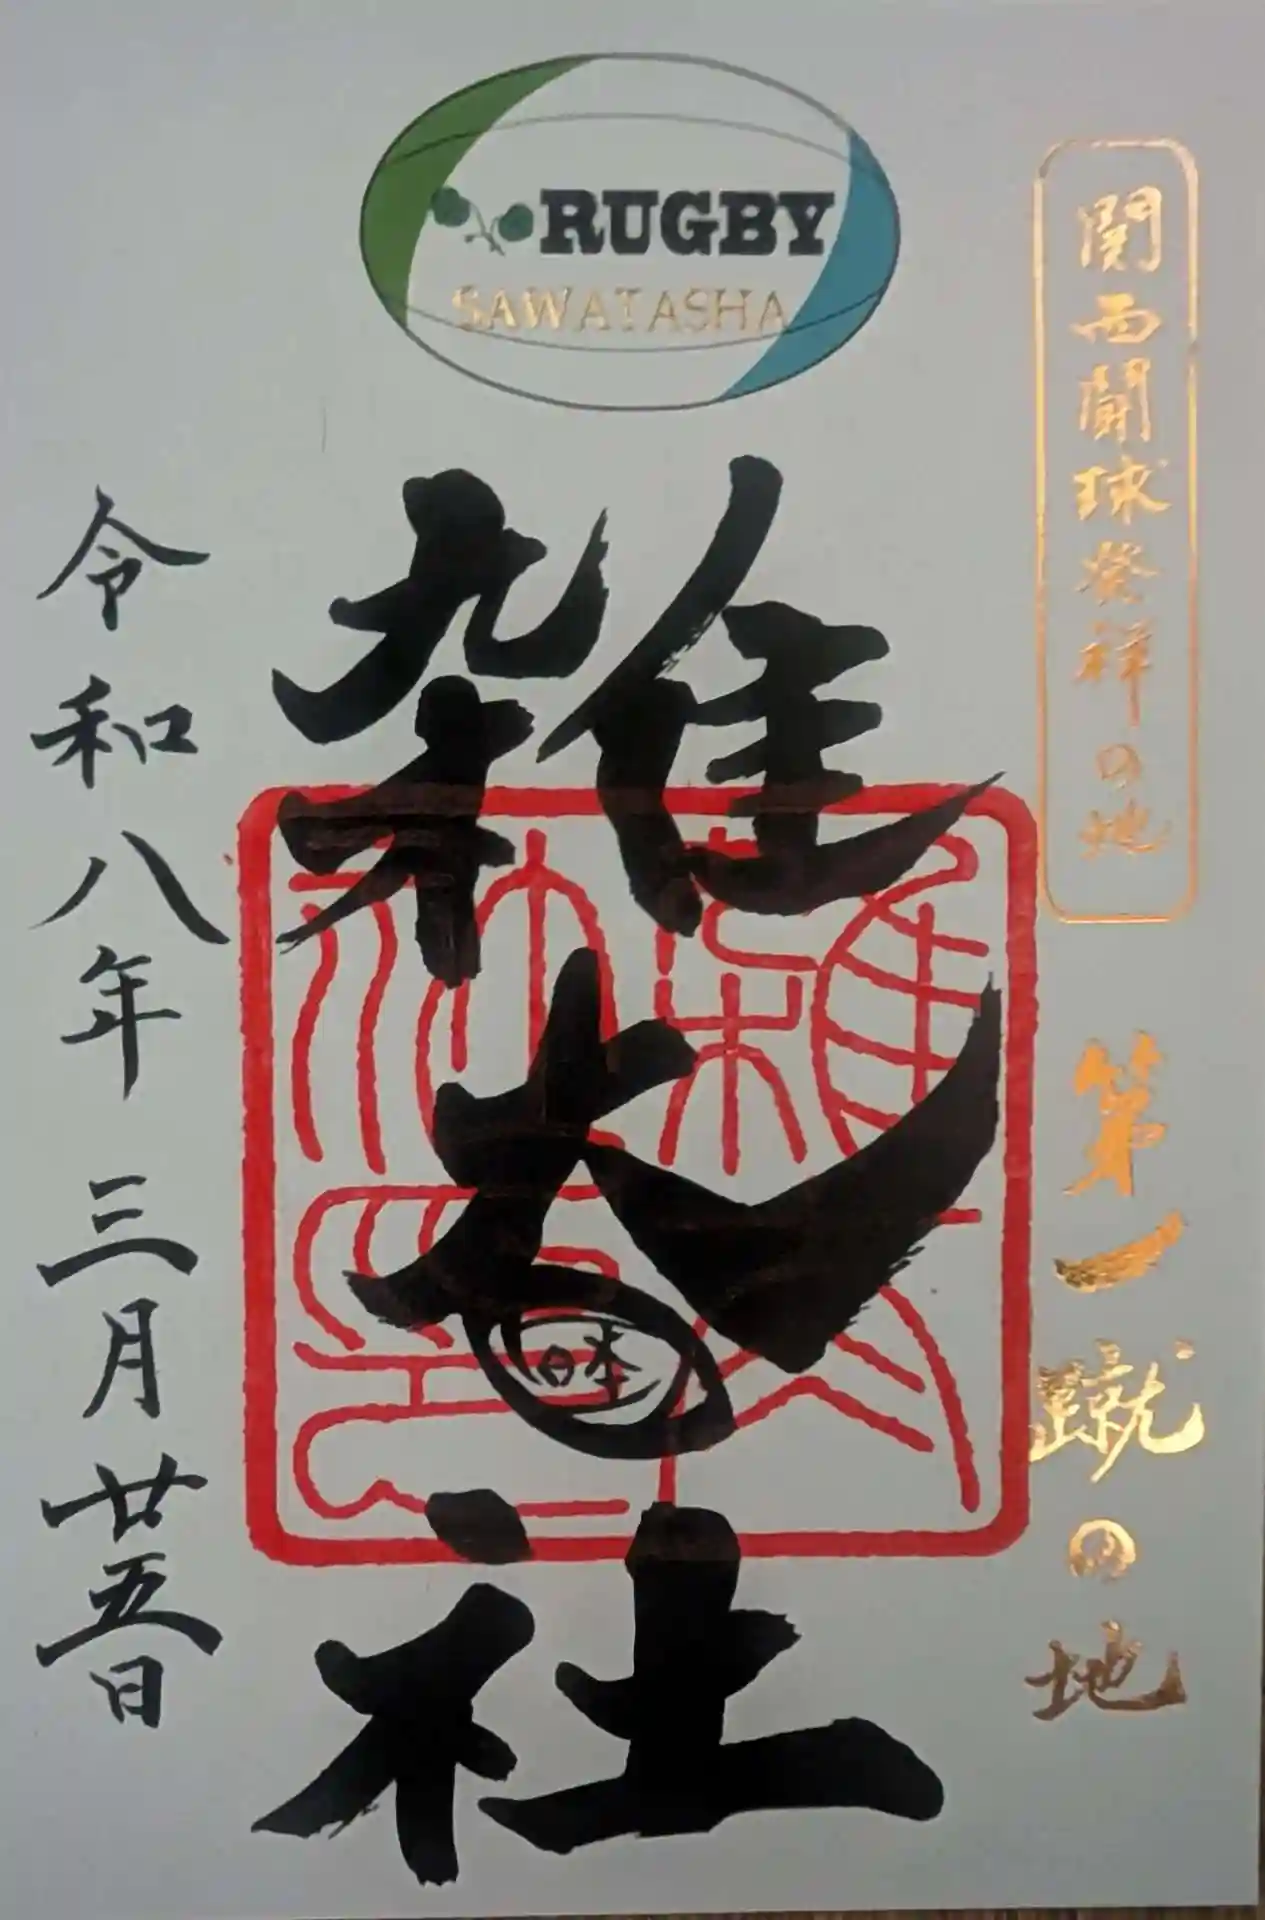 RUGBY
SAWATASHA
関西闘球発祥の地
第一蹴の地
雑太社
日本
令和八年三月廿五日